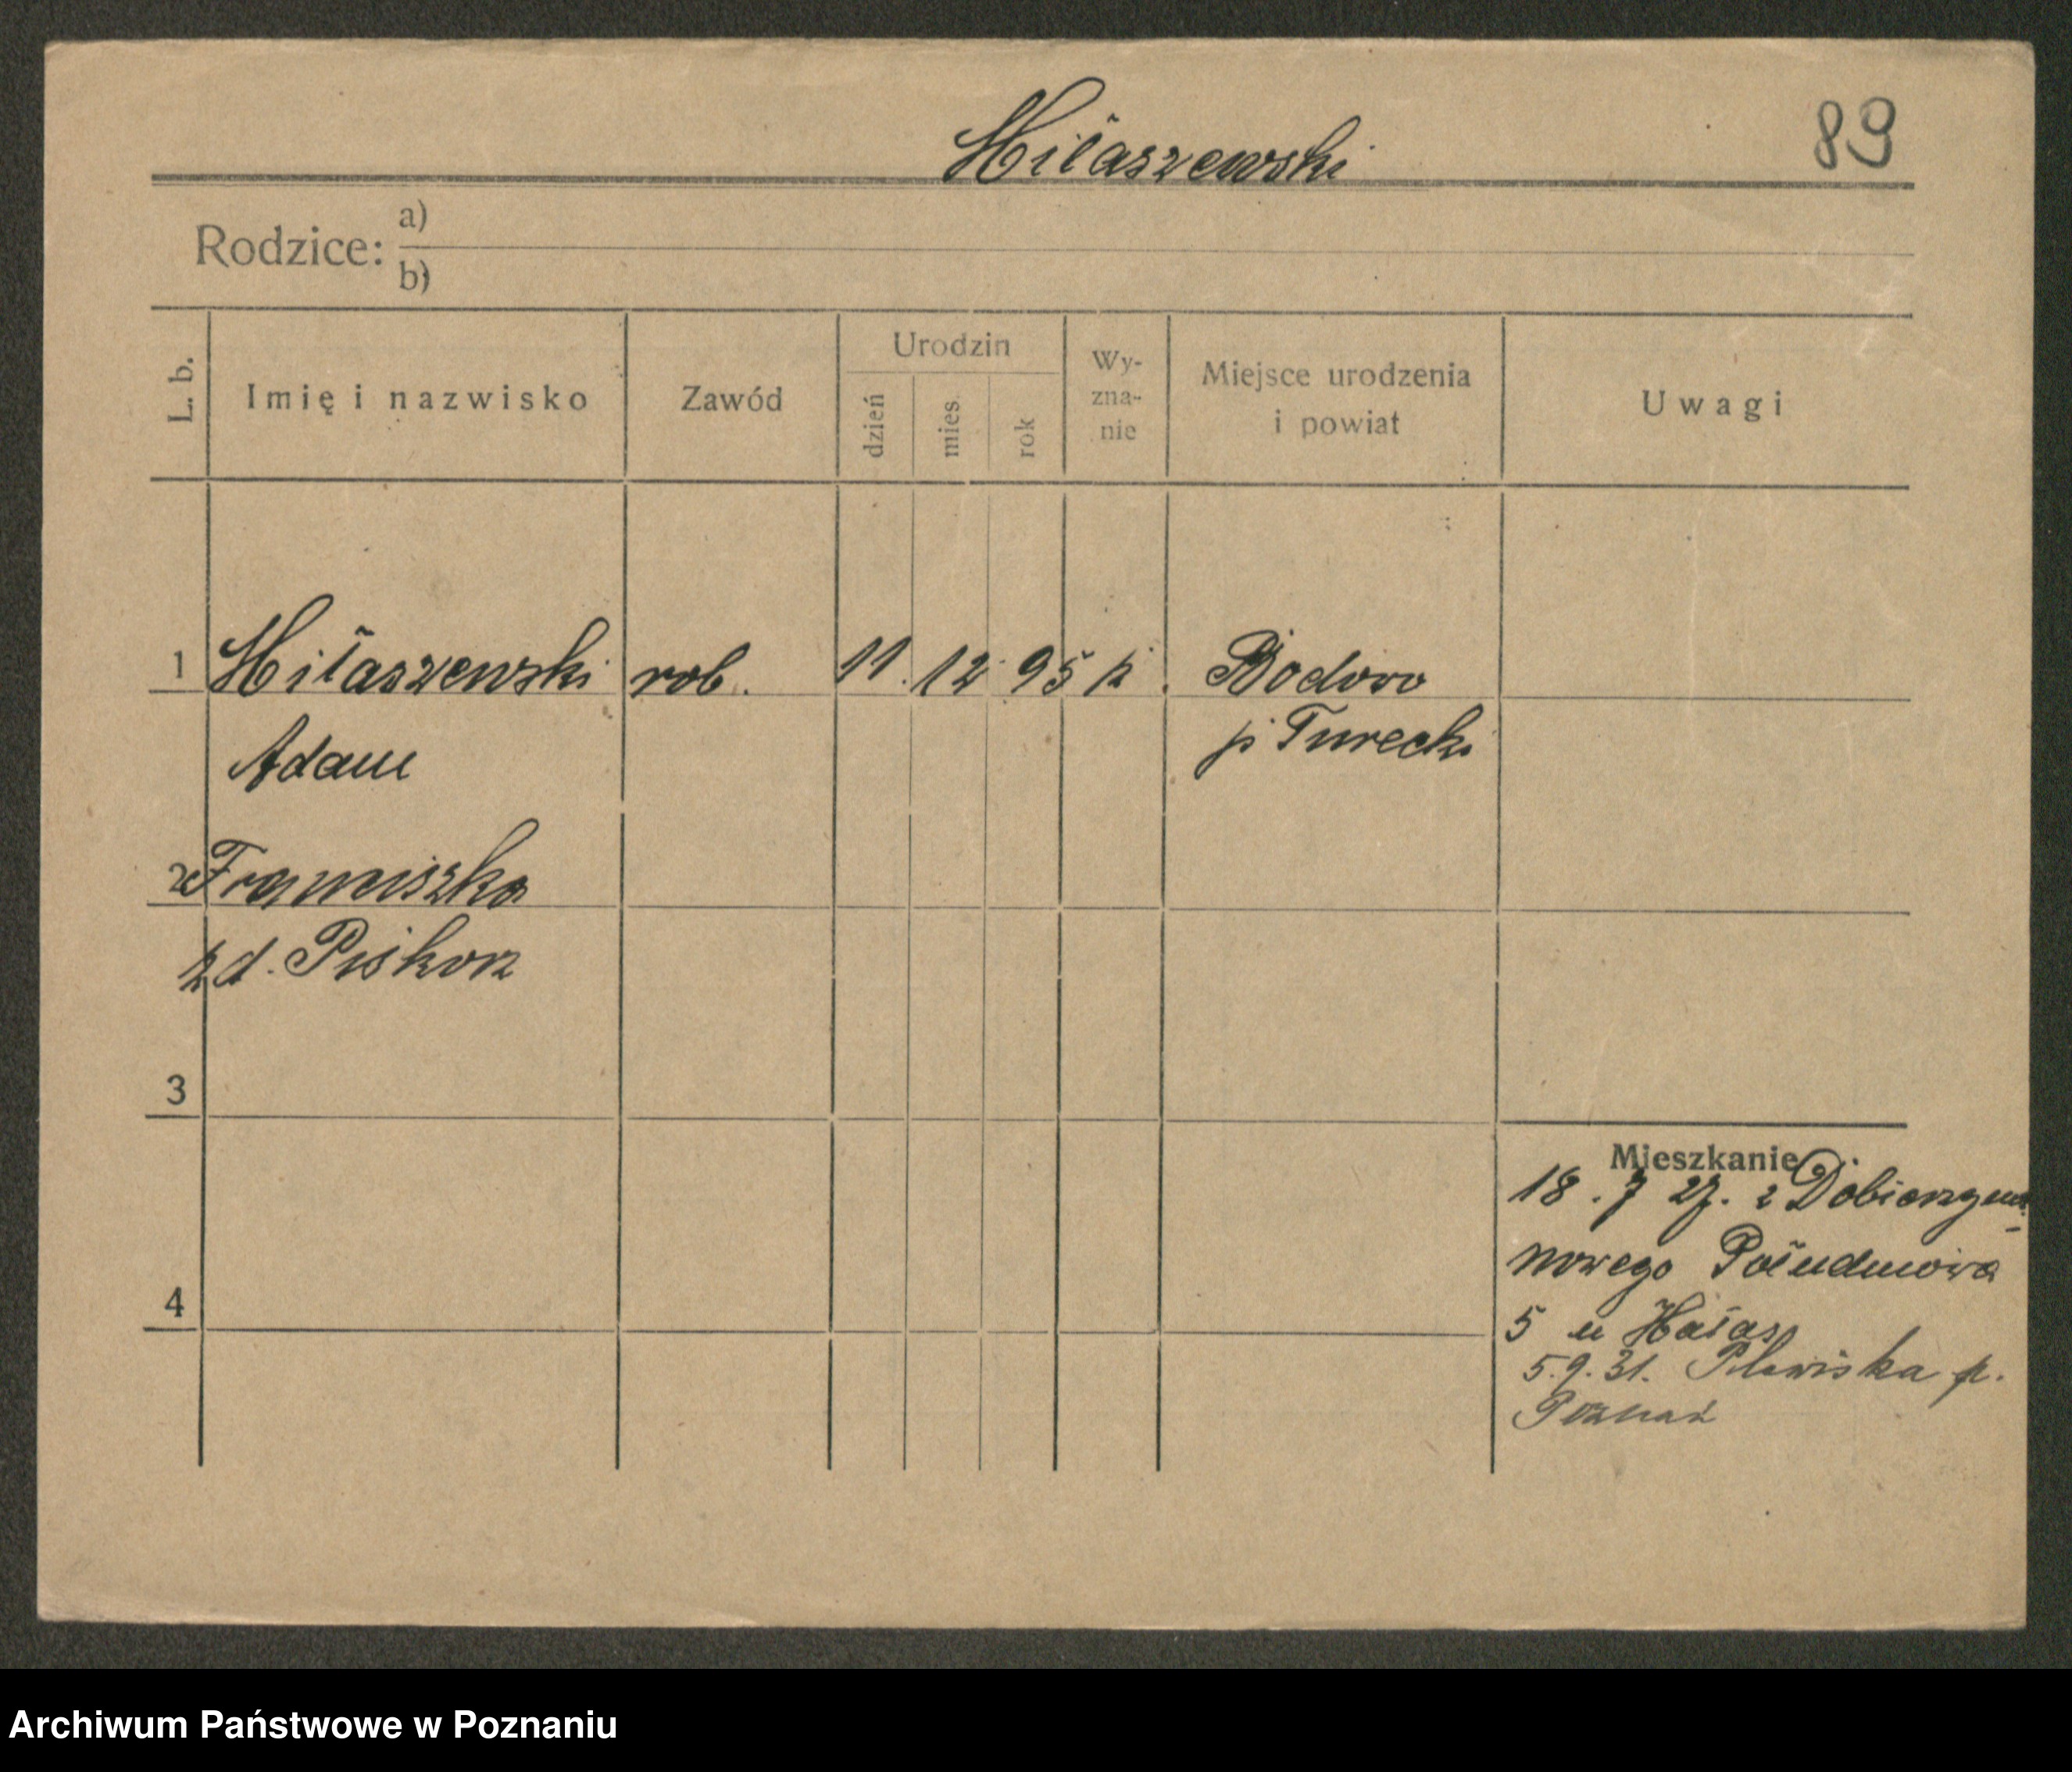 Hiłaszewski
89
Rodzice: a)
b)
L. b.
Imię i nazwisko
Zawód
Urodzin
dzień
mies.
rok
Wy-
zna-
nie
Miejsce urodzenia
i powiat
Uwagi
1 Hiłaszewski rob. 11. 12 95 k. Bodowo
Adam p. Tureck.
2 Franciszka
z d. Piskorz
3
Mieszkanie
18. 7 27. z
nowego Południowa
4
5 u Hałas
5.9.31. Plewiska p.
Poznań
Archiwum Państwowe w Poznaniu